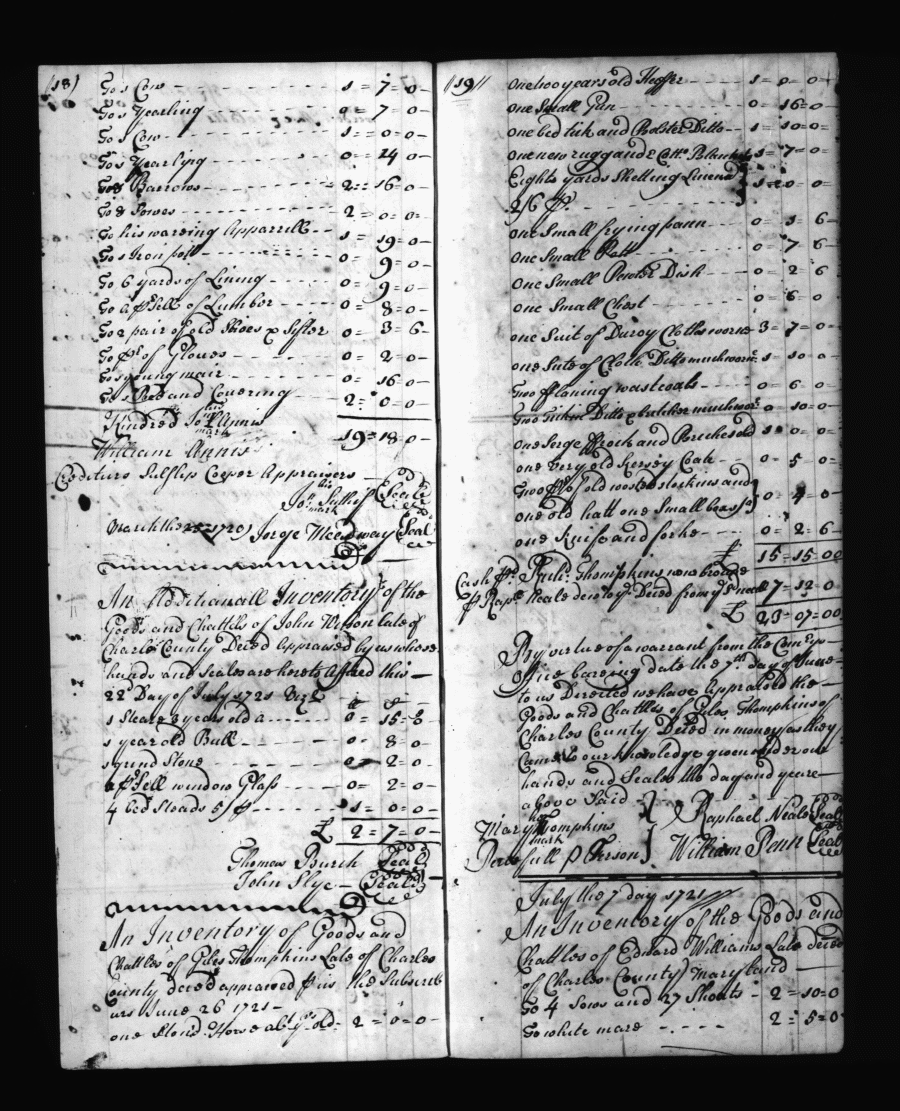 (18)
To 1 Cow - 1 = 7 = 0 -
To 1 Yearling - 0 = 7 = 0 -
To 1 Cow - 1 = 0 = 0 -
To 1 Yearling - 0 = 14 = 0 -
To 8 Barrows - 2 = 16 = 0 -
To 8 Sowes - 2 = 0 = 0 -
To his wareing Apparrell - 1 = 19 = 0 -
To 1 Iron pott - 0 = 9 = 0 -
To 6 yards of Lining - 0 = 9 = 0 -
To a psell of Lumber - 0 = 8 = 0 -
To a pair of old Shoes & Sifter 0 = 3 = 6 -
To pr of Gloves - 0 = 2 = 0 -
To 1 young mair - 0 = 16 = 0 -
To 1 Bed and Covering - 2 = 0 = 0 -
Kindred Jo Annis 19 = 18 = 0 -
his mark
William Annis
Creditors Cooper Appraisers
his
Jon mark Seale
March the 1720/1 Jorge Meadway Seal
An Additianall Inventory of the
Goods and Chattels of John Wilson late of
Charles County Deced Appraised by us whose
hands and Seales are hereto Affixed this
22d Day of July 1721 Viz
1 Steare 3 years old a - 0 = 15 =
1 year old Bull - 0 = 8 = 0 -
1 grind stone - 0 = 2 = 0 -
a psell window Glass - 0 = 2 = 0 -
4 bed steads 5/ p - 1 = 0 = 0 -
£ 2 = 7 = 0 -
Thomas Burch Seale
John Slye - Seale
An Inventory of Goods and
Chattles of Giles Thompkins Late of Charles
County deced appraised p us the Subscrib
ers June 26 1721 -
one Stond Horse abt yrs old - 2 = 0 = 0 -
//19//
one two years old Heffer - 1 = 0 = 0 =
one Small Gun - 0 = 16 = 0 -
one bed tick and Bolster Ditto - 1 = 10 = 0 =
one new rugg and 2 Cottn Blankets 1 = 7 = 0 -
Eight yards Shetting Linen
2/6 p 1 = 0 = 0
one Small frying pann - 0 = 1 = 6
one Small Pott - 0 = 7 = 6
one Small Pewter Dish - 0 = 2 = 6
one Small Chest - 0 = 6 = 0
one Suit of Duroy Cloths worne 3 = 7 = 0 -
one Sute of Cloth Ditto much worn 1 = 10 = 0
Two flaning wastcoats - 0 = 6 = 0
Two Ditto & britches much wor 0 = 10 = 0 -
one Serge ffrock and Britches old 1 = 0 = 0 -
one very old Kersey Coate - 0 = 5 = 0 =
Two pr of old wosted stockins and
one old hatt one Small 0 = 4 = 0 -
one Knife and forke - 0 = 2 = 6
£ 15 = 15 = 00
Cash pd Thompkins
p Raph Neale to ye Deced from 7 = 12 = 0
£ 23 = 07 = 00
By virtue of a warrant from the Comrys
office bareing date the 7th day of June
to us Directed we have Appraised the
Goods and Chattles of Giles Thompkins of
Charles County Deced in money as they
Came to our knowledge given under our
hands and Seales the day and yeare
above Said
her
Mary Thompkins Raphael Neale Seale
mark
full Person William Penn Seale
July the 7 day 1721
An Inventory of the Goods and
Chattles of Edward Williams Late deced
of Charles County Maryland
To 4 Sows and 27 Shoats - 2 = 10 = 0
To white mare - 2 = 5 = 0